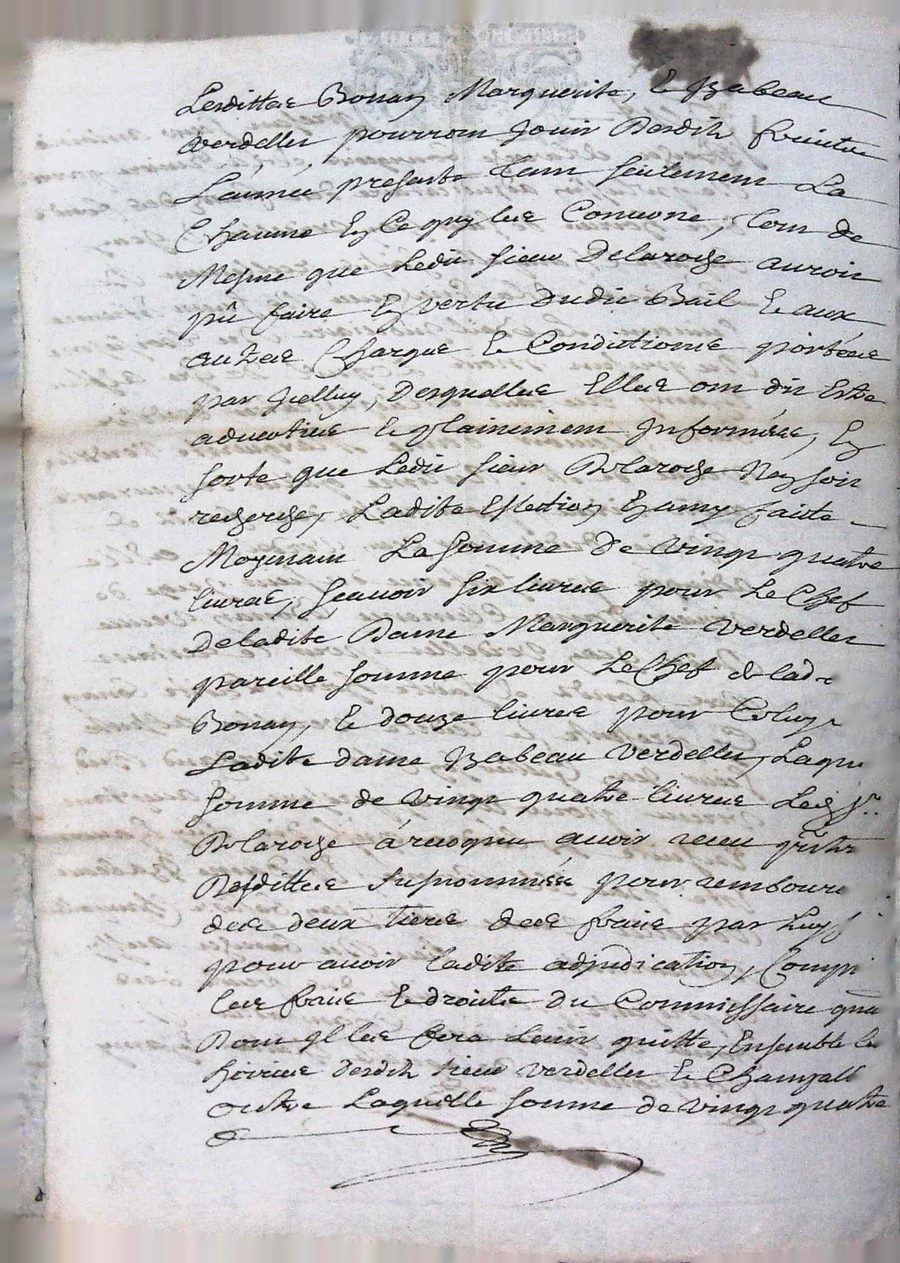 Lesdittes Bonan Marguerite, & Izabeau
Verdellet pourront Jouir Desdits fruits
L'année presante Tant seulement La
Chacune En Ce quy les Conserne, tout de
Mesme que Ledit sieur Delaroze auroit
pû faire En vertu dudit Bail & aux
autres Charges & Conditions portées
par Icelluy, Desquelles Elles ont dit Estre
adverties & plainement Informées, En
sorte que Ledit sieur Delaroze N'en soit
recherché, Ladite Eslection En amy faitte
Moyenant La somme De vingt quatre
livres, sçavoir six livres pour Le Chef
De ladite Dame Marguerite Verdellet
pareille somme pour Le Chef de lad
Bonan, & douze livres pour Celuy
Ladite dame Izabeau Verdellet, Laque
somme de vingt quatre livres Led Sr
Delaroze à recognu avoir receu
Desdittes susnommées pour rembourc
des deux tiers des frais par Luy
pour avoir ladite adjudication, Compr
les frais & droits Du Commissaire
Dont Il les tiens quitte, Ensemble les
hoirs desdits sieur Verdellet & Champall
outre Laquelle somme de vingt quatre